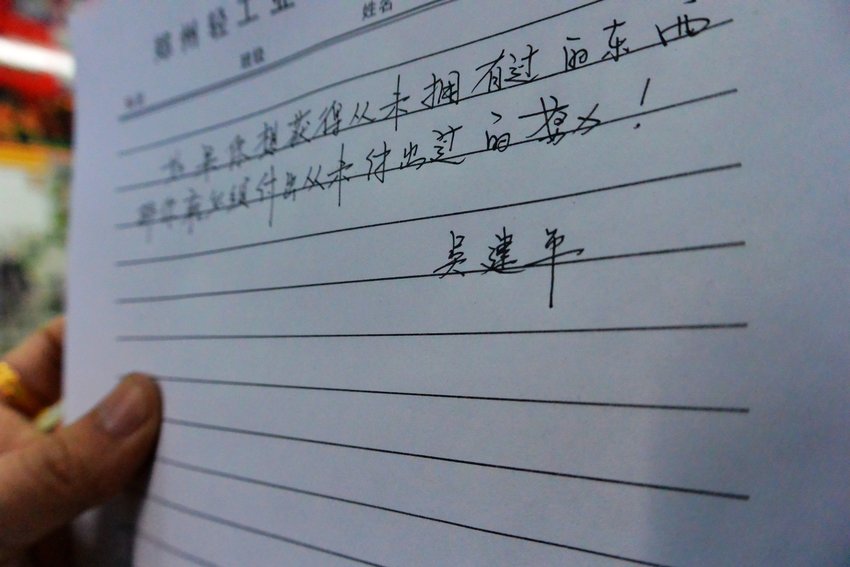 郑州轻工业
姓名
班级
如果你想获得从未拥有过的东西
那你就必须付出从未付出过的努力！
吴建平